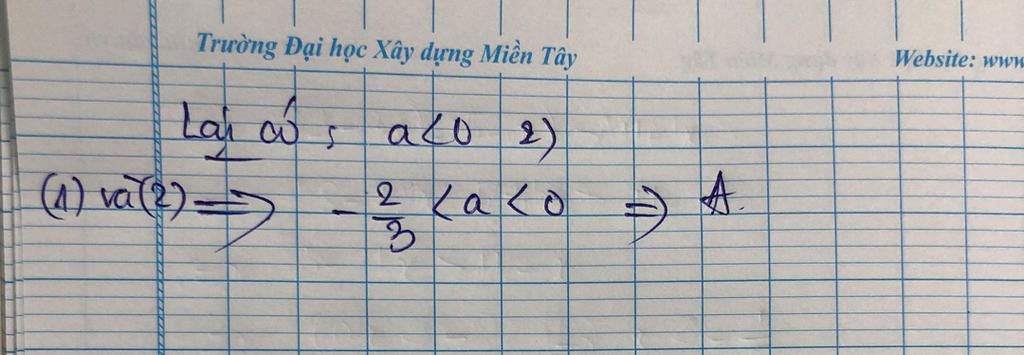 Trường Đại học Xây dựng Miền Tây
Website: www
Lại có ; a < 0 2)
(1) và (2) => - 2/3 < a < 0 => A.